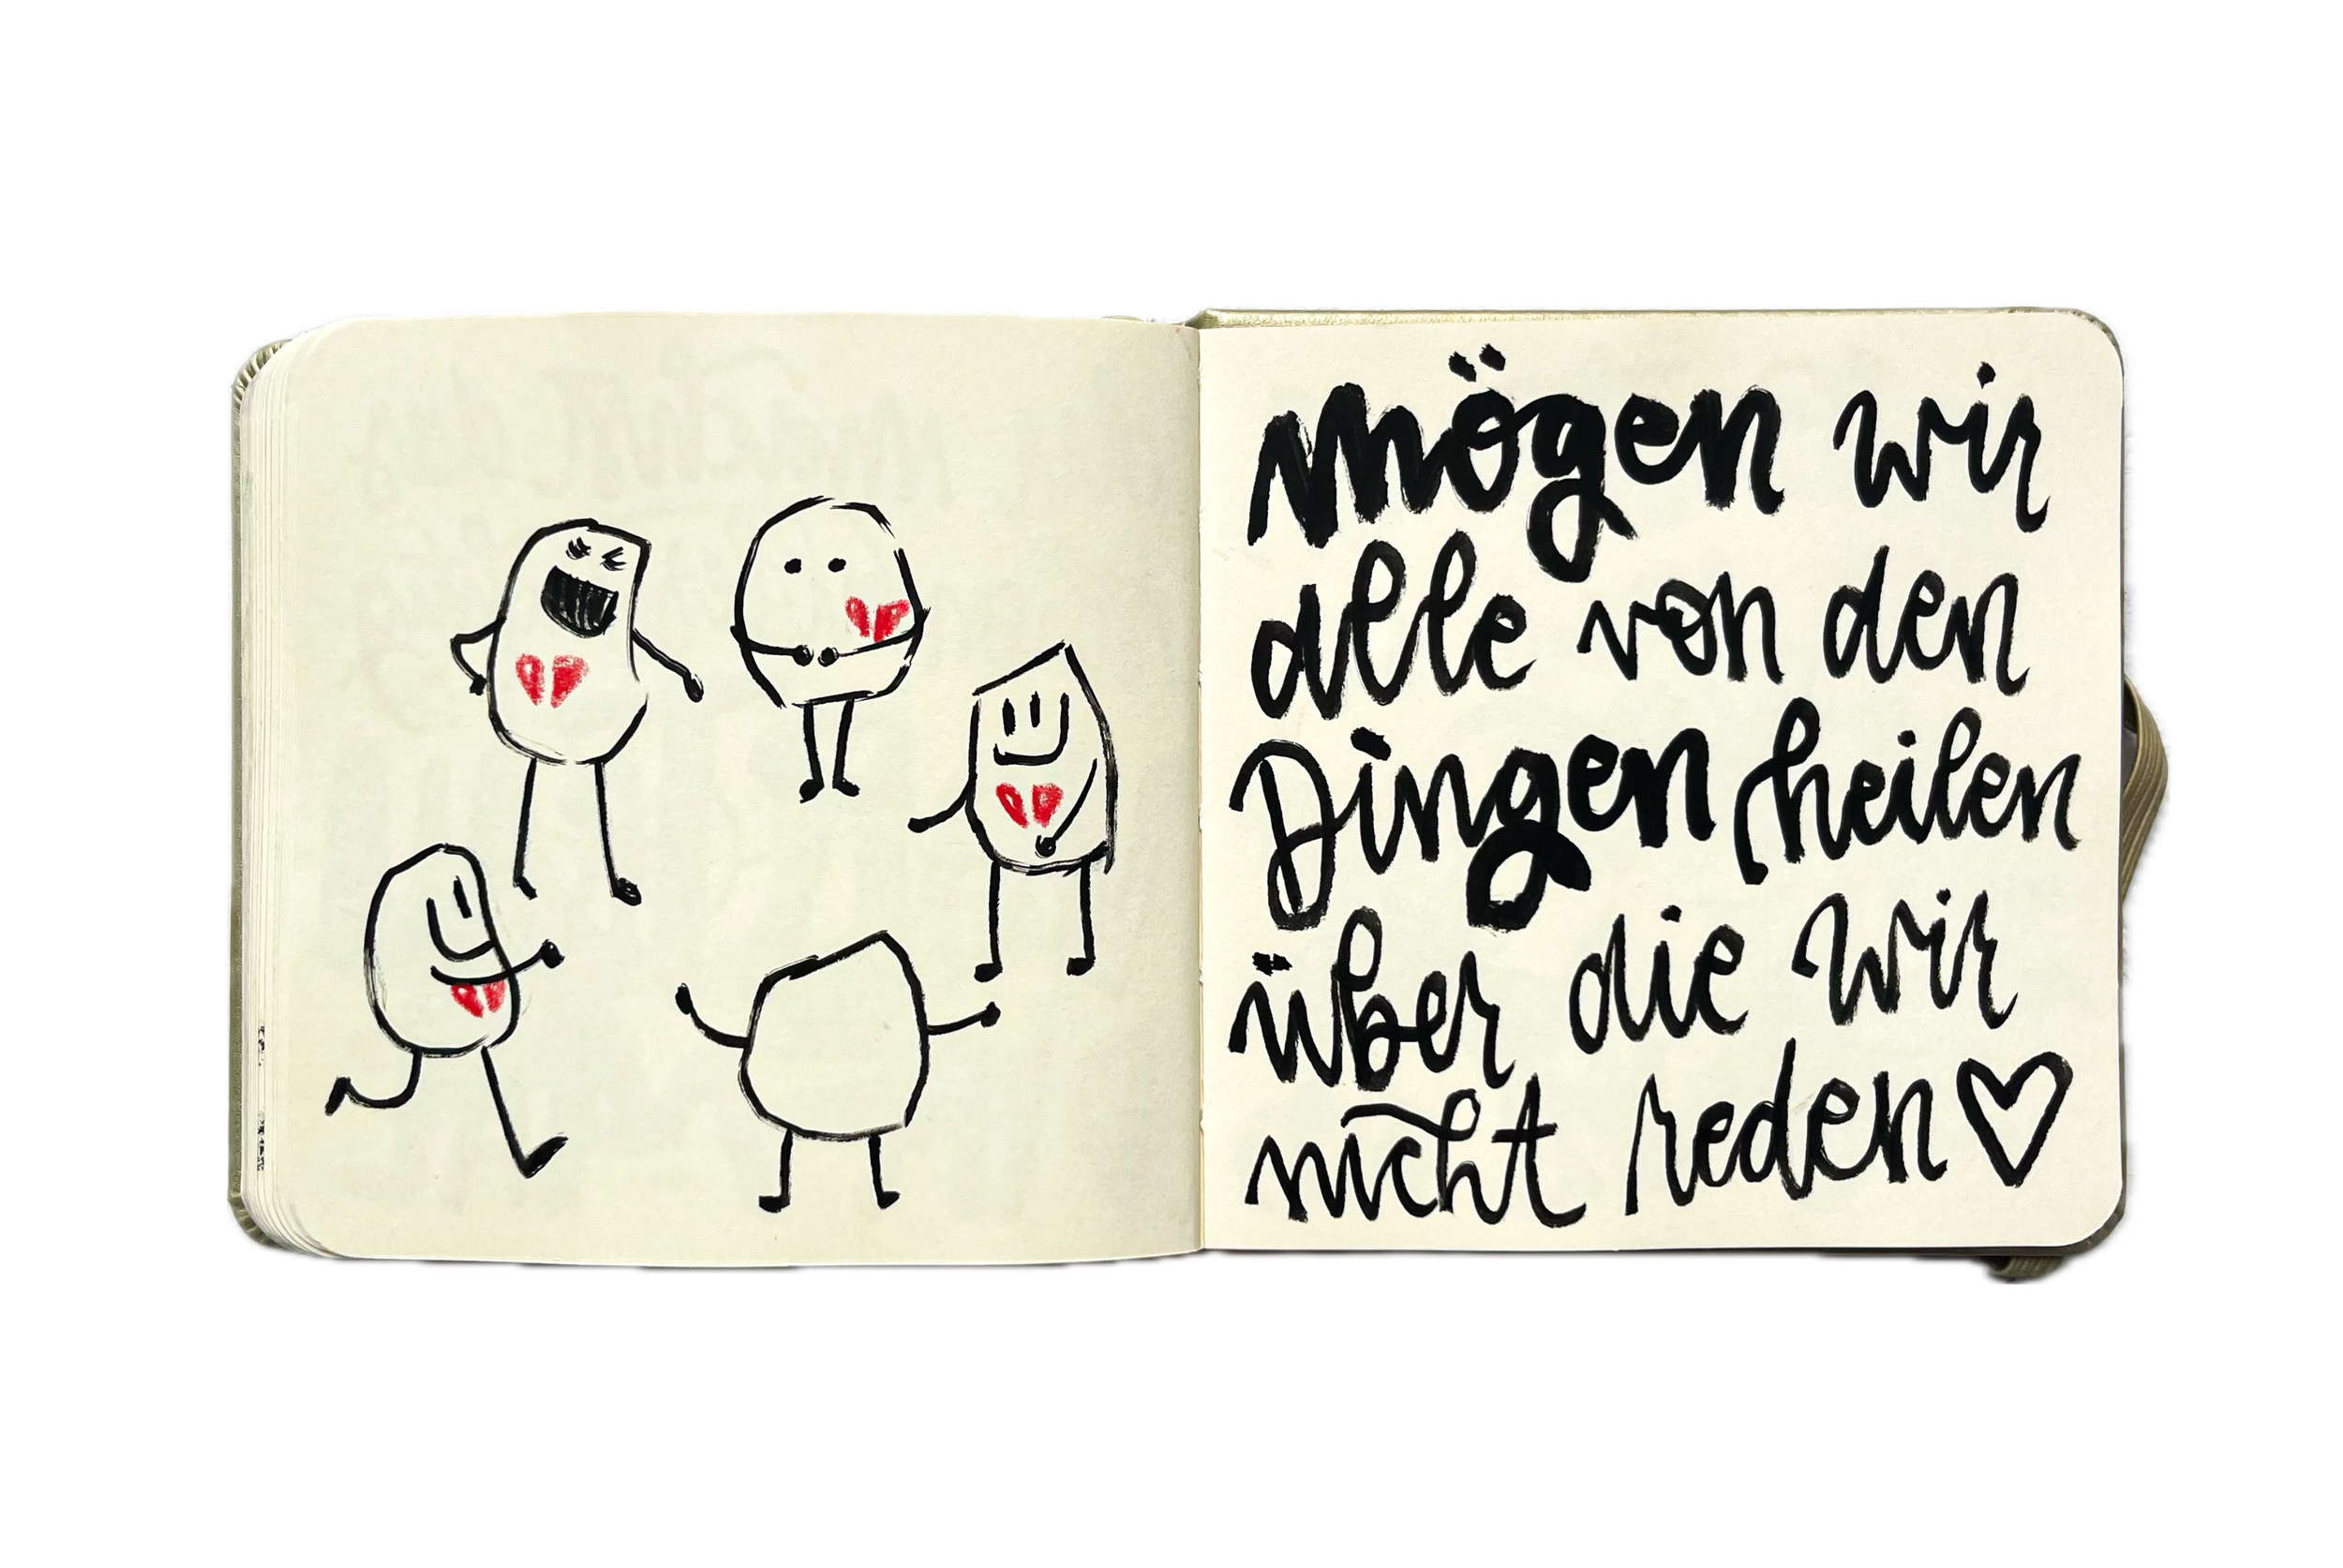 mögen wir
alle von den
Dingen heilen
über die wir
nicht reden